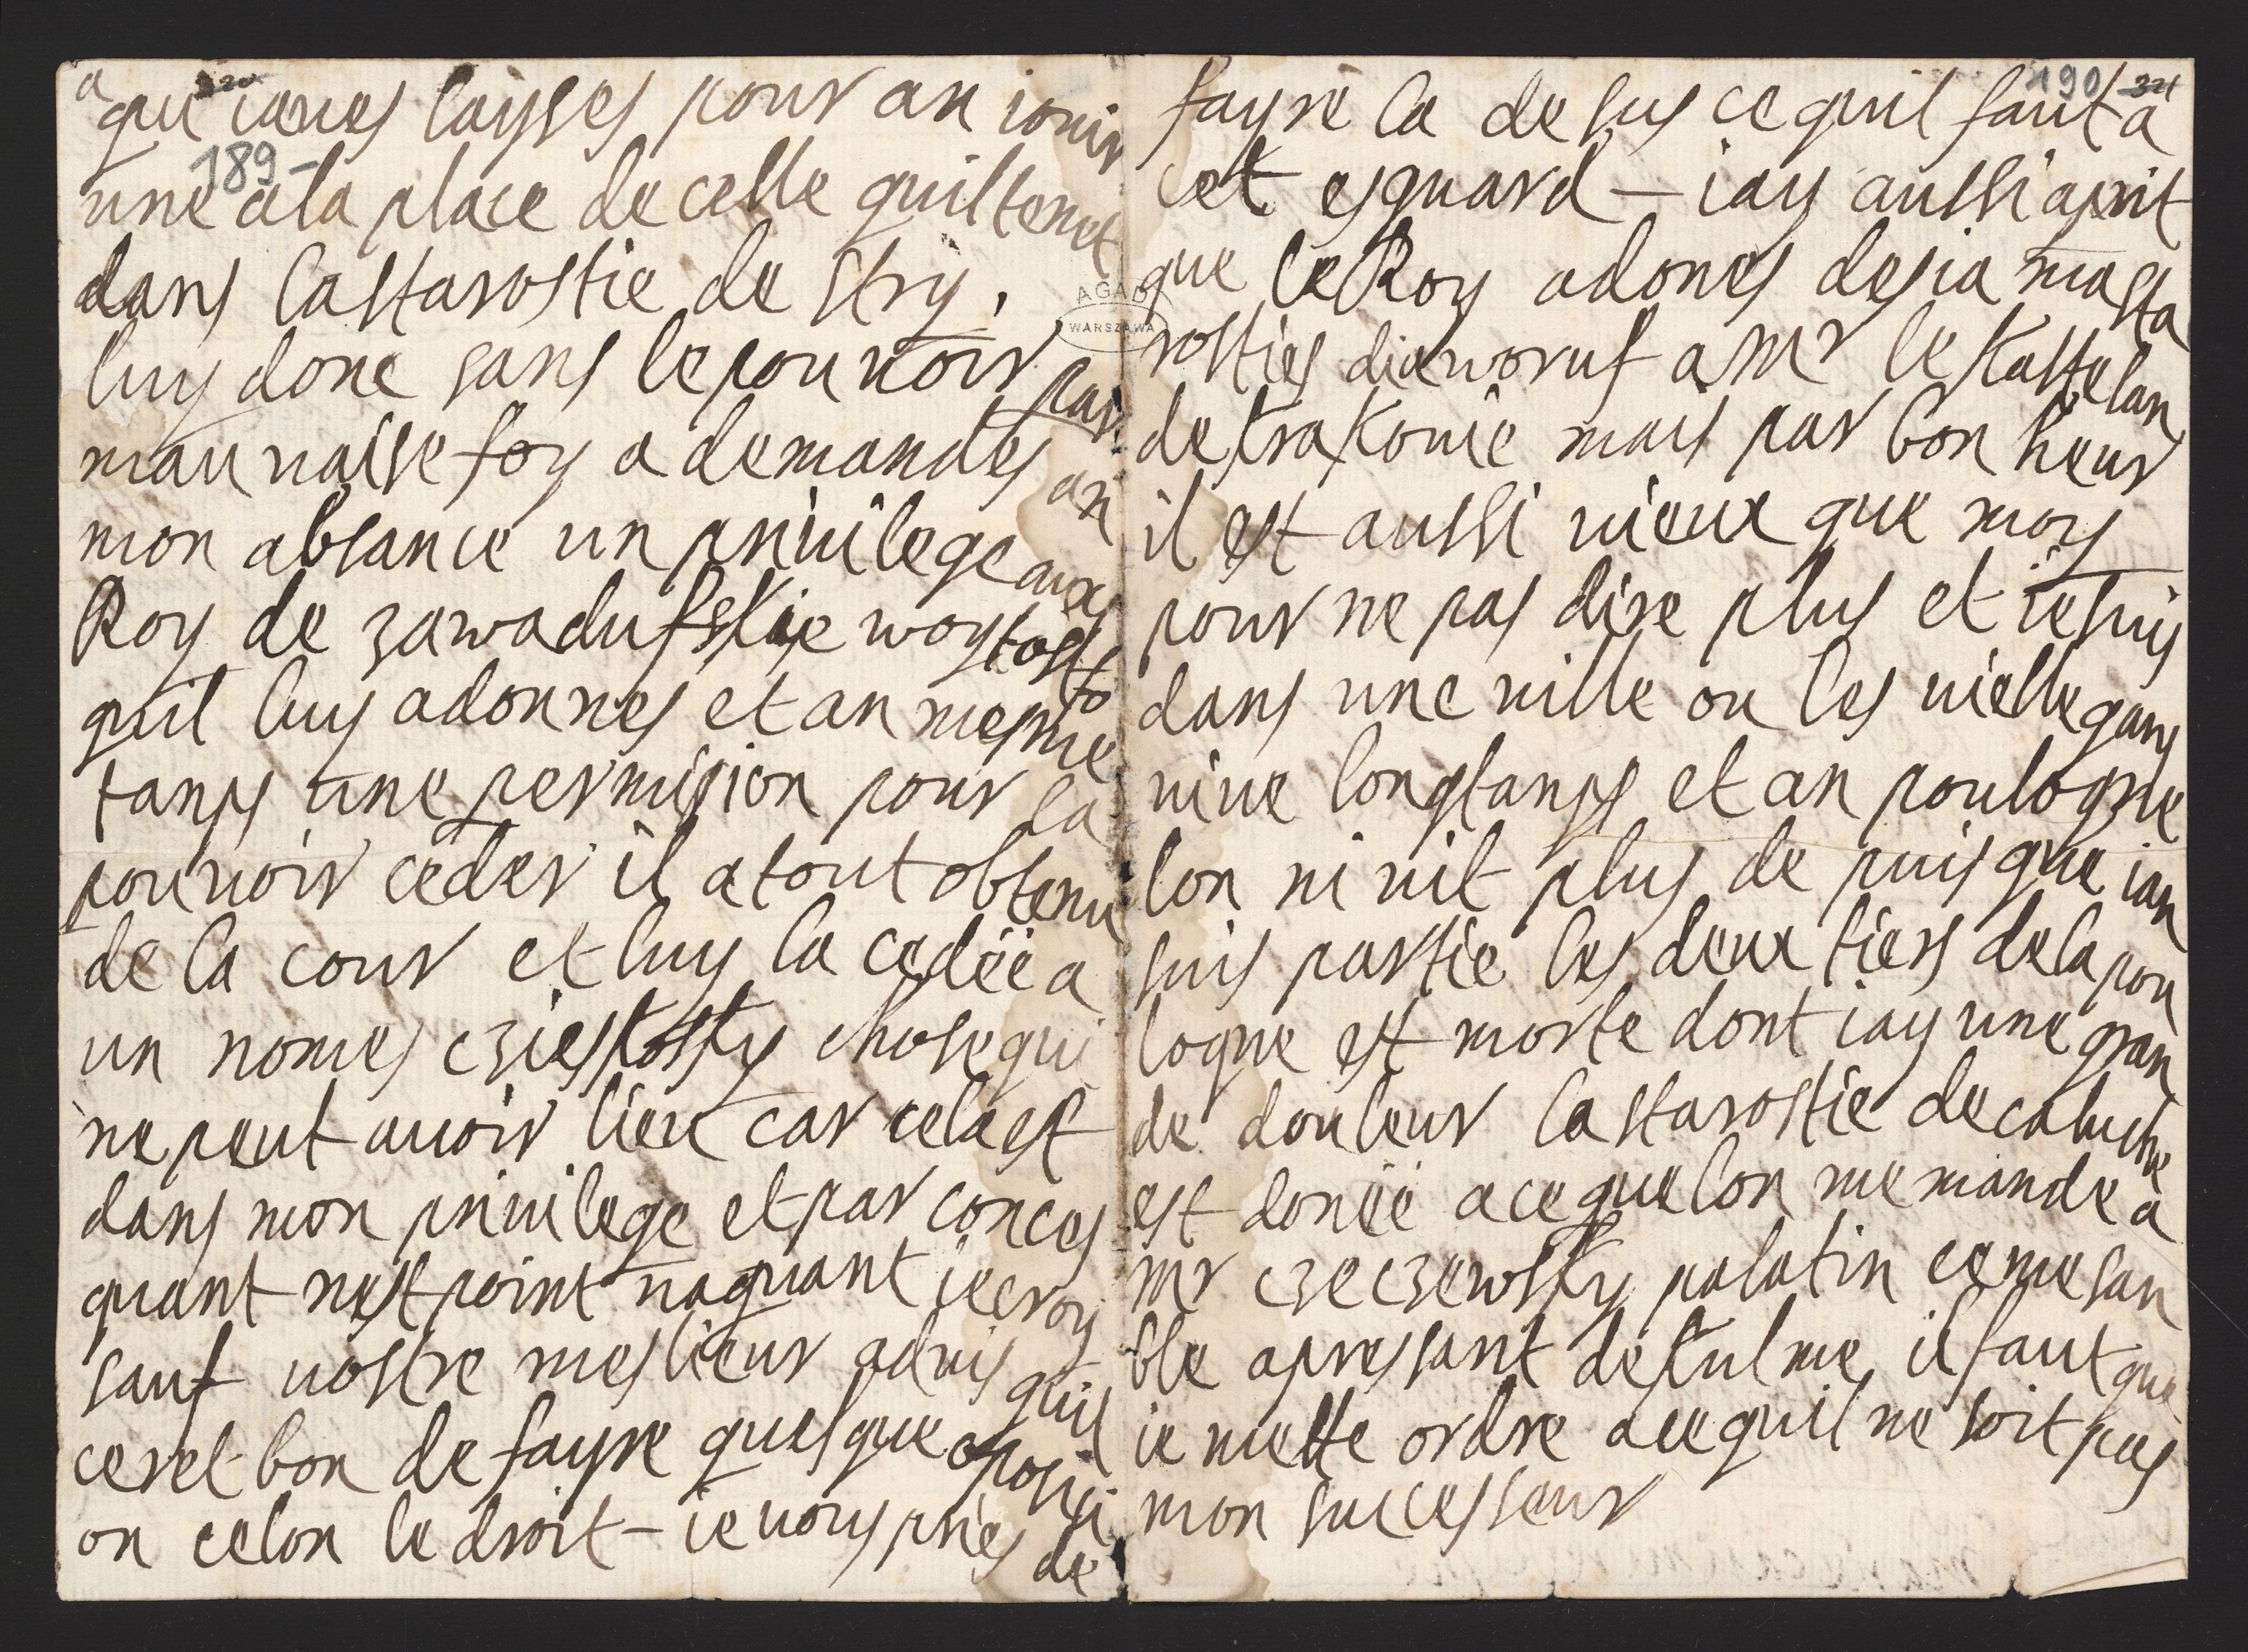 a
qui iaues laysses pour an iouir
189-
une ala place de celle quil tenet
dans la starostie de stry,
luy done sans le pouuoir par
mauuaise foy a demandes an
mon absance un priuilege aux
Roy de zawadufskie woytostfo
quil luy adonnes et an mesme
tamps une permision pour la
pouuoir ceder il a tout obtenu
de la cour et luy la cedëe a
un nomes cziesKosKy chose qui
ne peut auoir lieu car cela est
dans mon priuilege et par conces
quant nest point uaquant ie croy
sauf uostre meslieur aduis quil
ceret bon de fayre quesque oposisi
on celon le droit - ie uous pries de
190 321
fayre la desus ce quil faut a
cet esguard - iay aussi aprit
que le Roy adones desia masta
AGAD
WARSZAWA
rosties diaworuf a Mr le Kastelan
de KraKouie mais par bon heur
il est aussi uieux que moy
pour ne pas dire plus et ie suis
dans une uille ou les uielle gans
uiue longtamps et an poulogne
lon ni uit plus de puis que ian
suis partie les deux tiers dela pou
logne est morte dont iay une gran
de douleur la starostie de caluche
est donëe a ce que lon me mande a
Mr czeczewsKy palatin ce me san
ble apressant de Kulme il faut que
ie mette ordre a ce quil ne soit pas
mon successeur